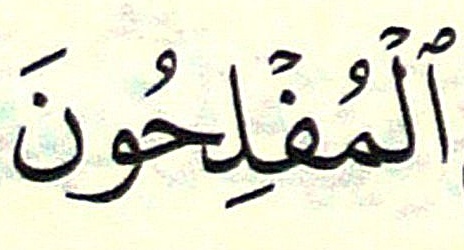 ٱلْمُفْلِحُونَ